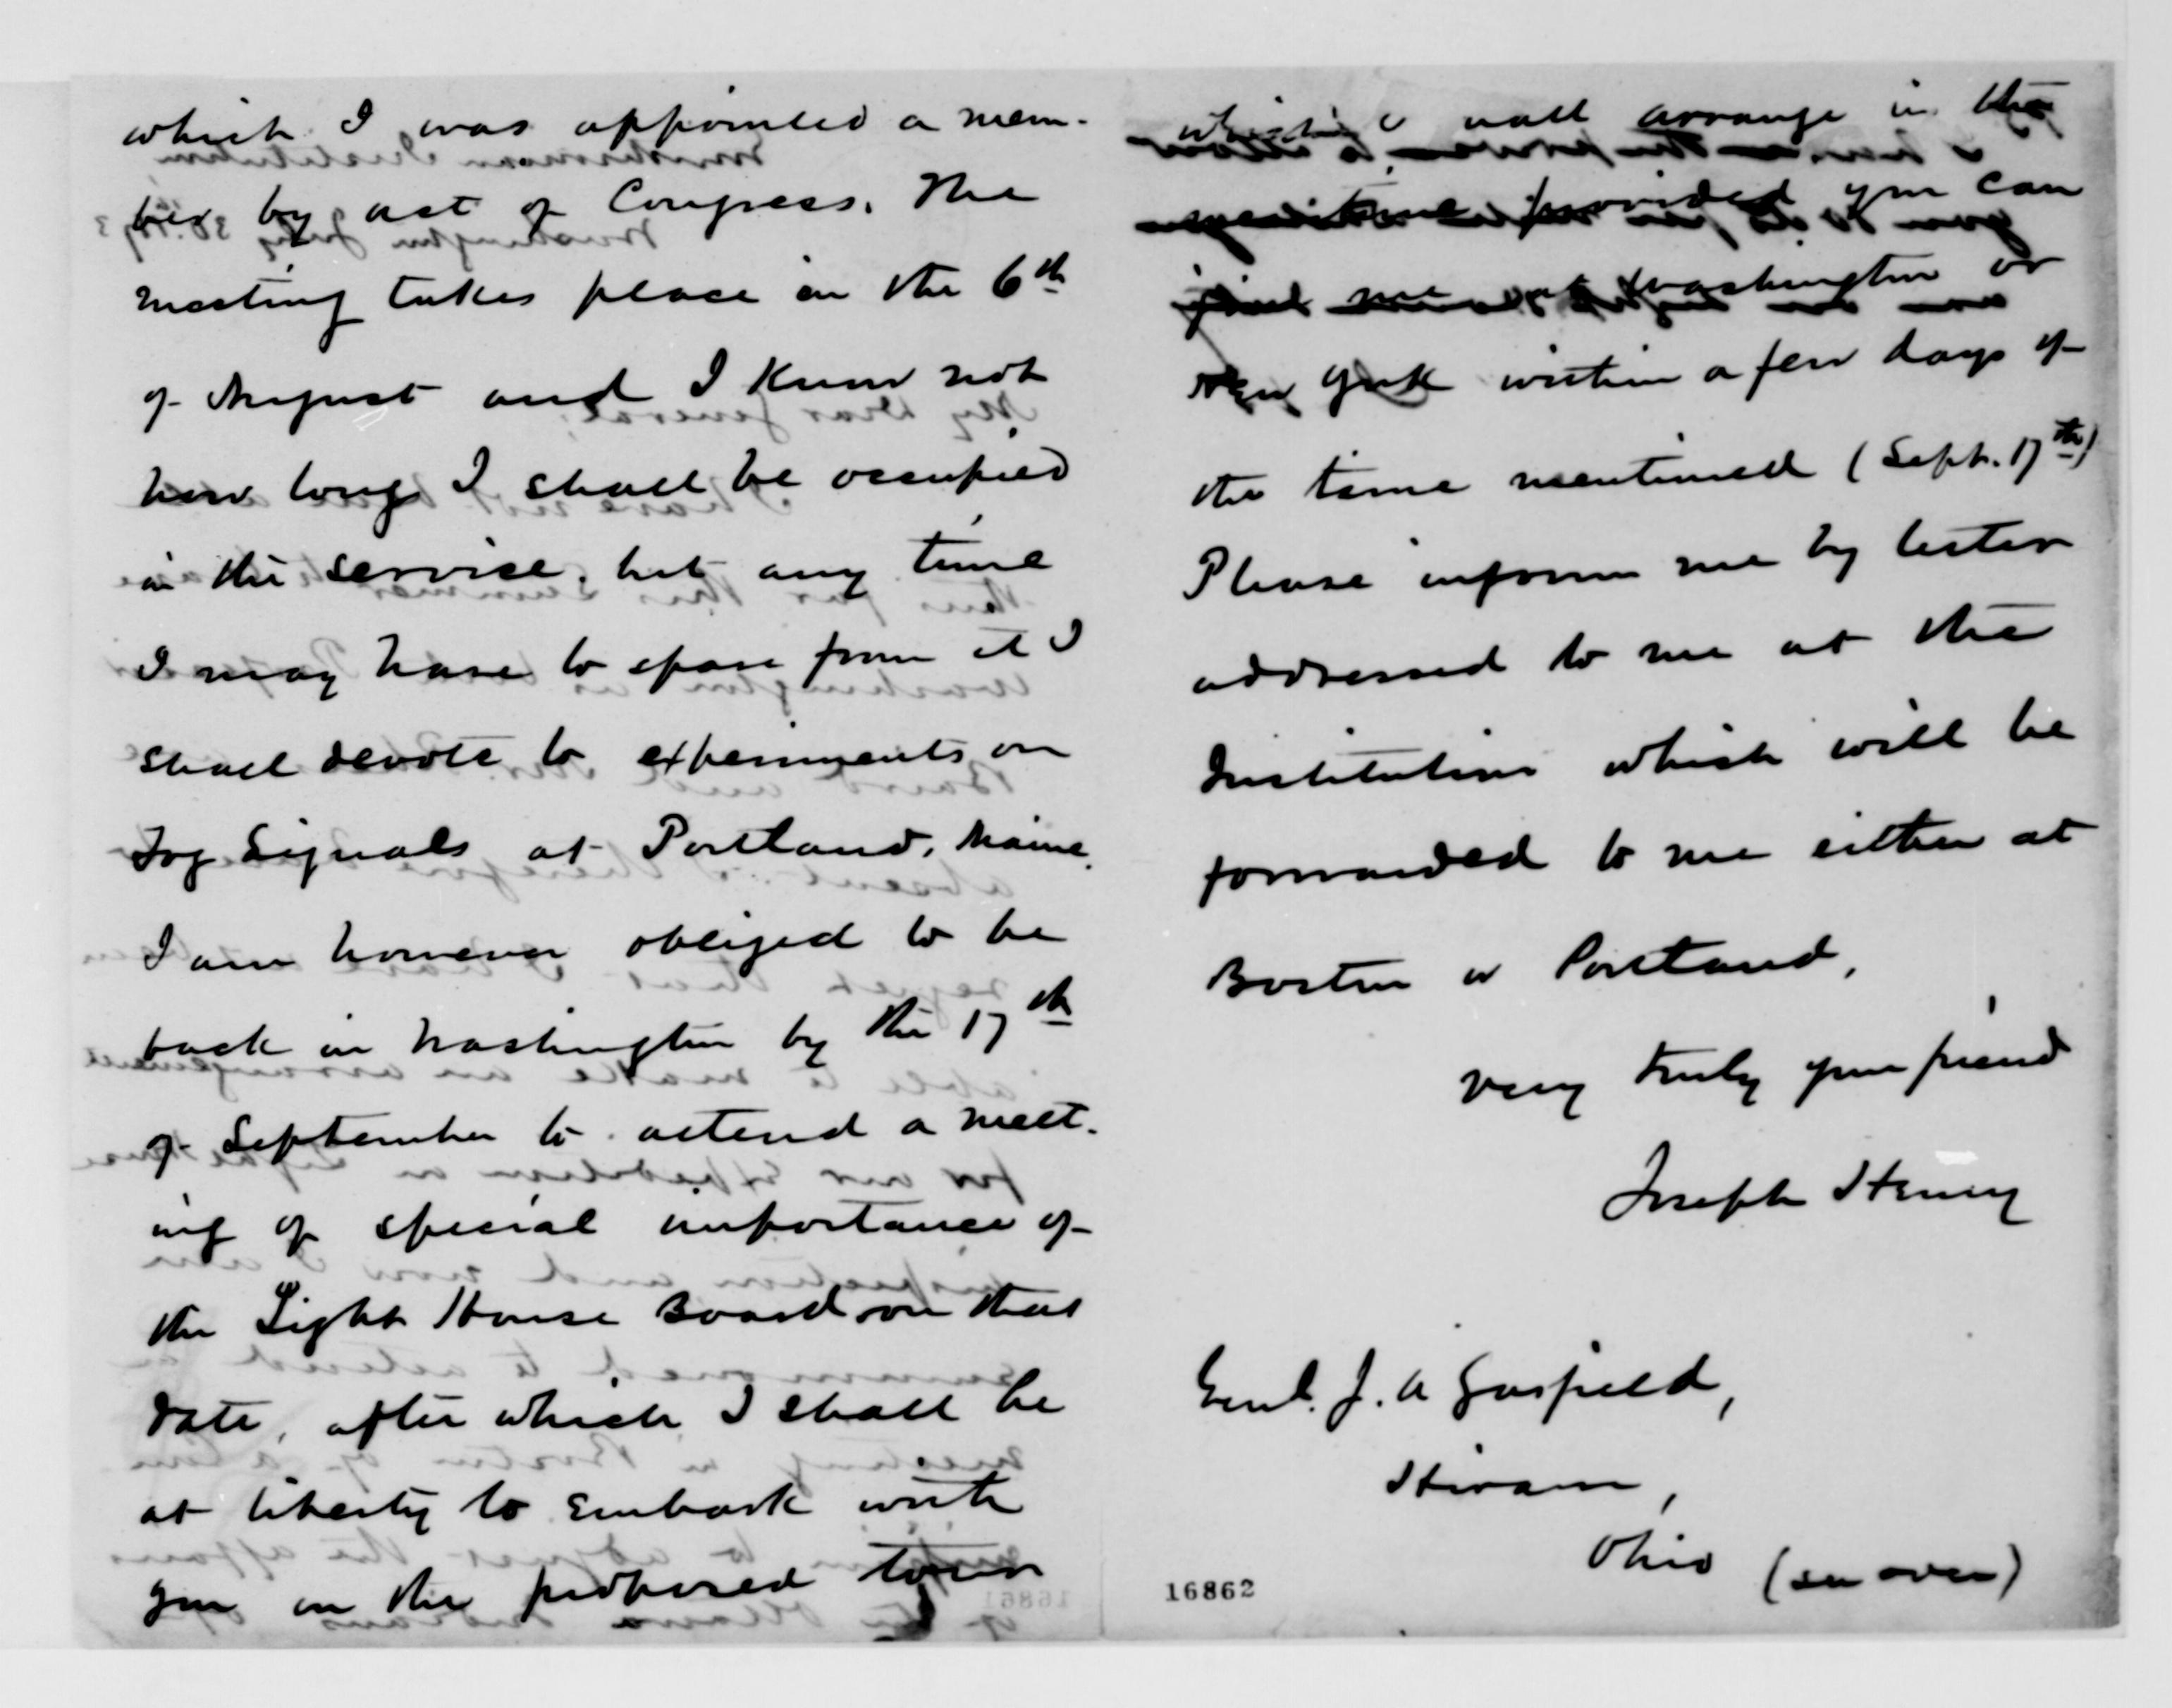 which I was appointed a mem-
ber by act of Congress. The
meeting takes place on the 6th
of August and I know not
how long I shall be occupied
in the service, but any time
I may have to spare from it I
shall devote to experiments on
Fog Signals at Portland, Maine.
I am however obliged to be
back in Washington by the 17th
of September to attend a meet-
ing of special importance of
the Light House Board on that
date, after which I shall be
at liberty to embark with
you on the proposed tour
which I will arrange in the
provided you can
me at Washington or
New York within a few days of
the time mentioned (Sept. 17th)
Please inform me by letter
addressed to me at the
Institution which will be
forwarded to me either at
Boston or Portland,
very truly your friend
Joseph Henry
Genl. J. A Garfield,
Hiram,
Ohio (see over)
16862